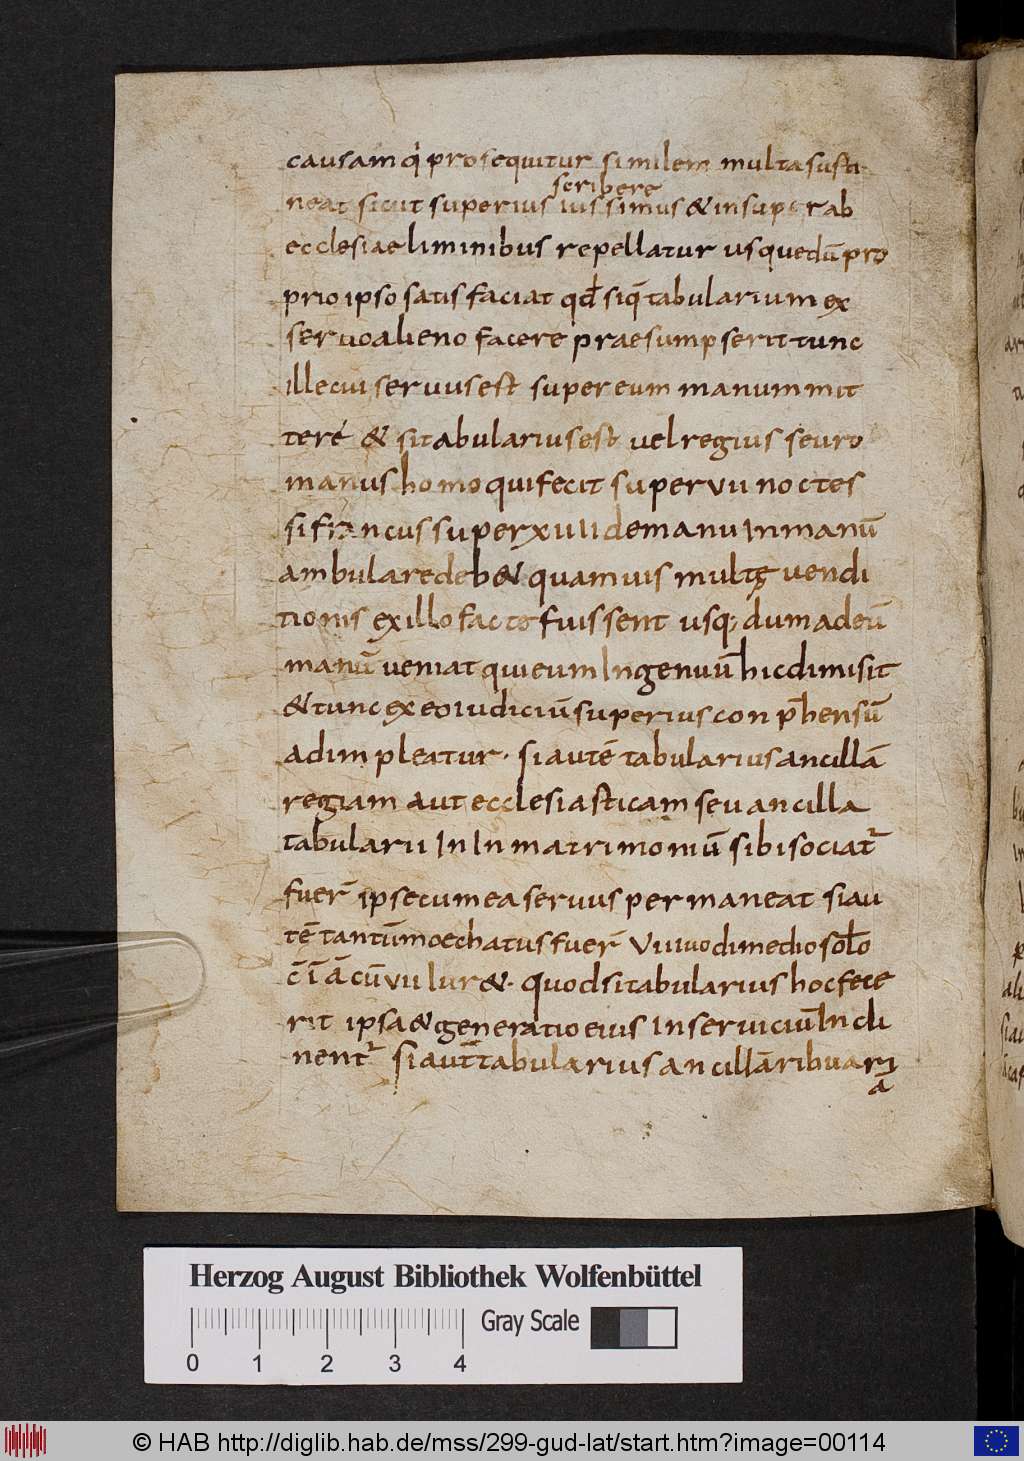 causam q prosequitur similem multa susti
scribere
neat sicut superius iussimus & insuper ab
ecclesiae liminibus repellatur usquedū pro
prio ipso satis faciat qđ siq̄ tabularium ex
servo alieno facere praesumpserit tunc
ille cui servus est super eum manum mit
tere & si tabularius est vel regius seu ro
manus homo qui fecit super vii noctes
si francus super xiiii de manu In manū
ambulare deb& quamvis multę vendi
tionis ex illo facte fuissent usq; dum ad eū
manū veniat qui eum Ingenuū hic dimisit
& tunc ex eo iudiciū superius conp̄hensū
adimpleatur. si autē tabularius ancillā
regiam aut ecclesiasticam seu ancilla
tabularii In In matrimoniū sibi sociat
fuer̄ ipse cum ea servus permaneat si au
tē tantū moechatus fuer̄ Viuuo dimedio sol o
c̄ īā cū vii lur&. quod si tabularius hoc fece
rit ipsa & generatio eius In serviciū Incli
nent si aut̄ tabularius ancillā ribuari
a
Herzog August Bibliothek Wolfenbüttel
Gray Scale
0 1 2 3 4
© HAB http://diglib.hab.de/mss/299-gud-lat/start.htm?image=00114